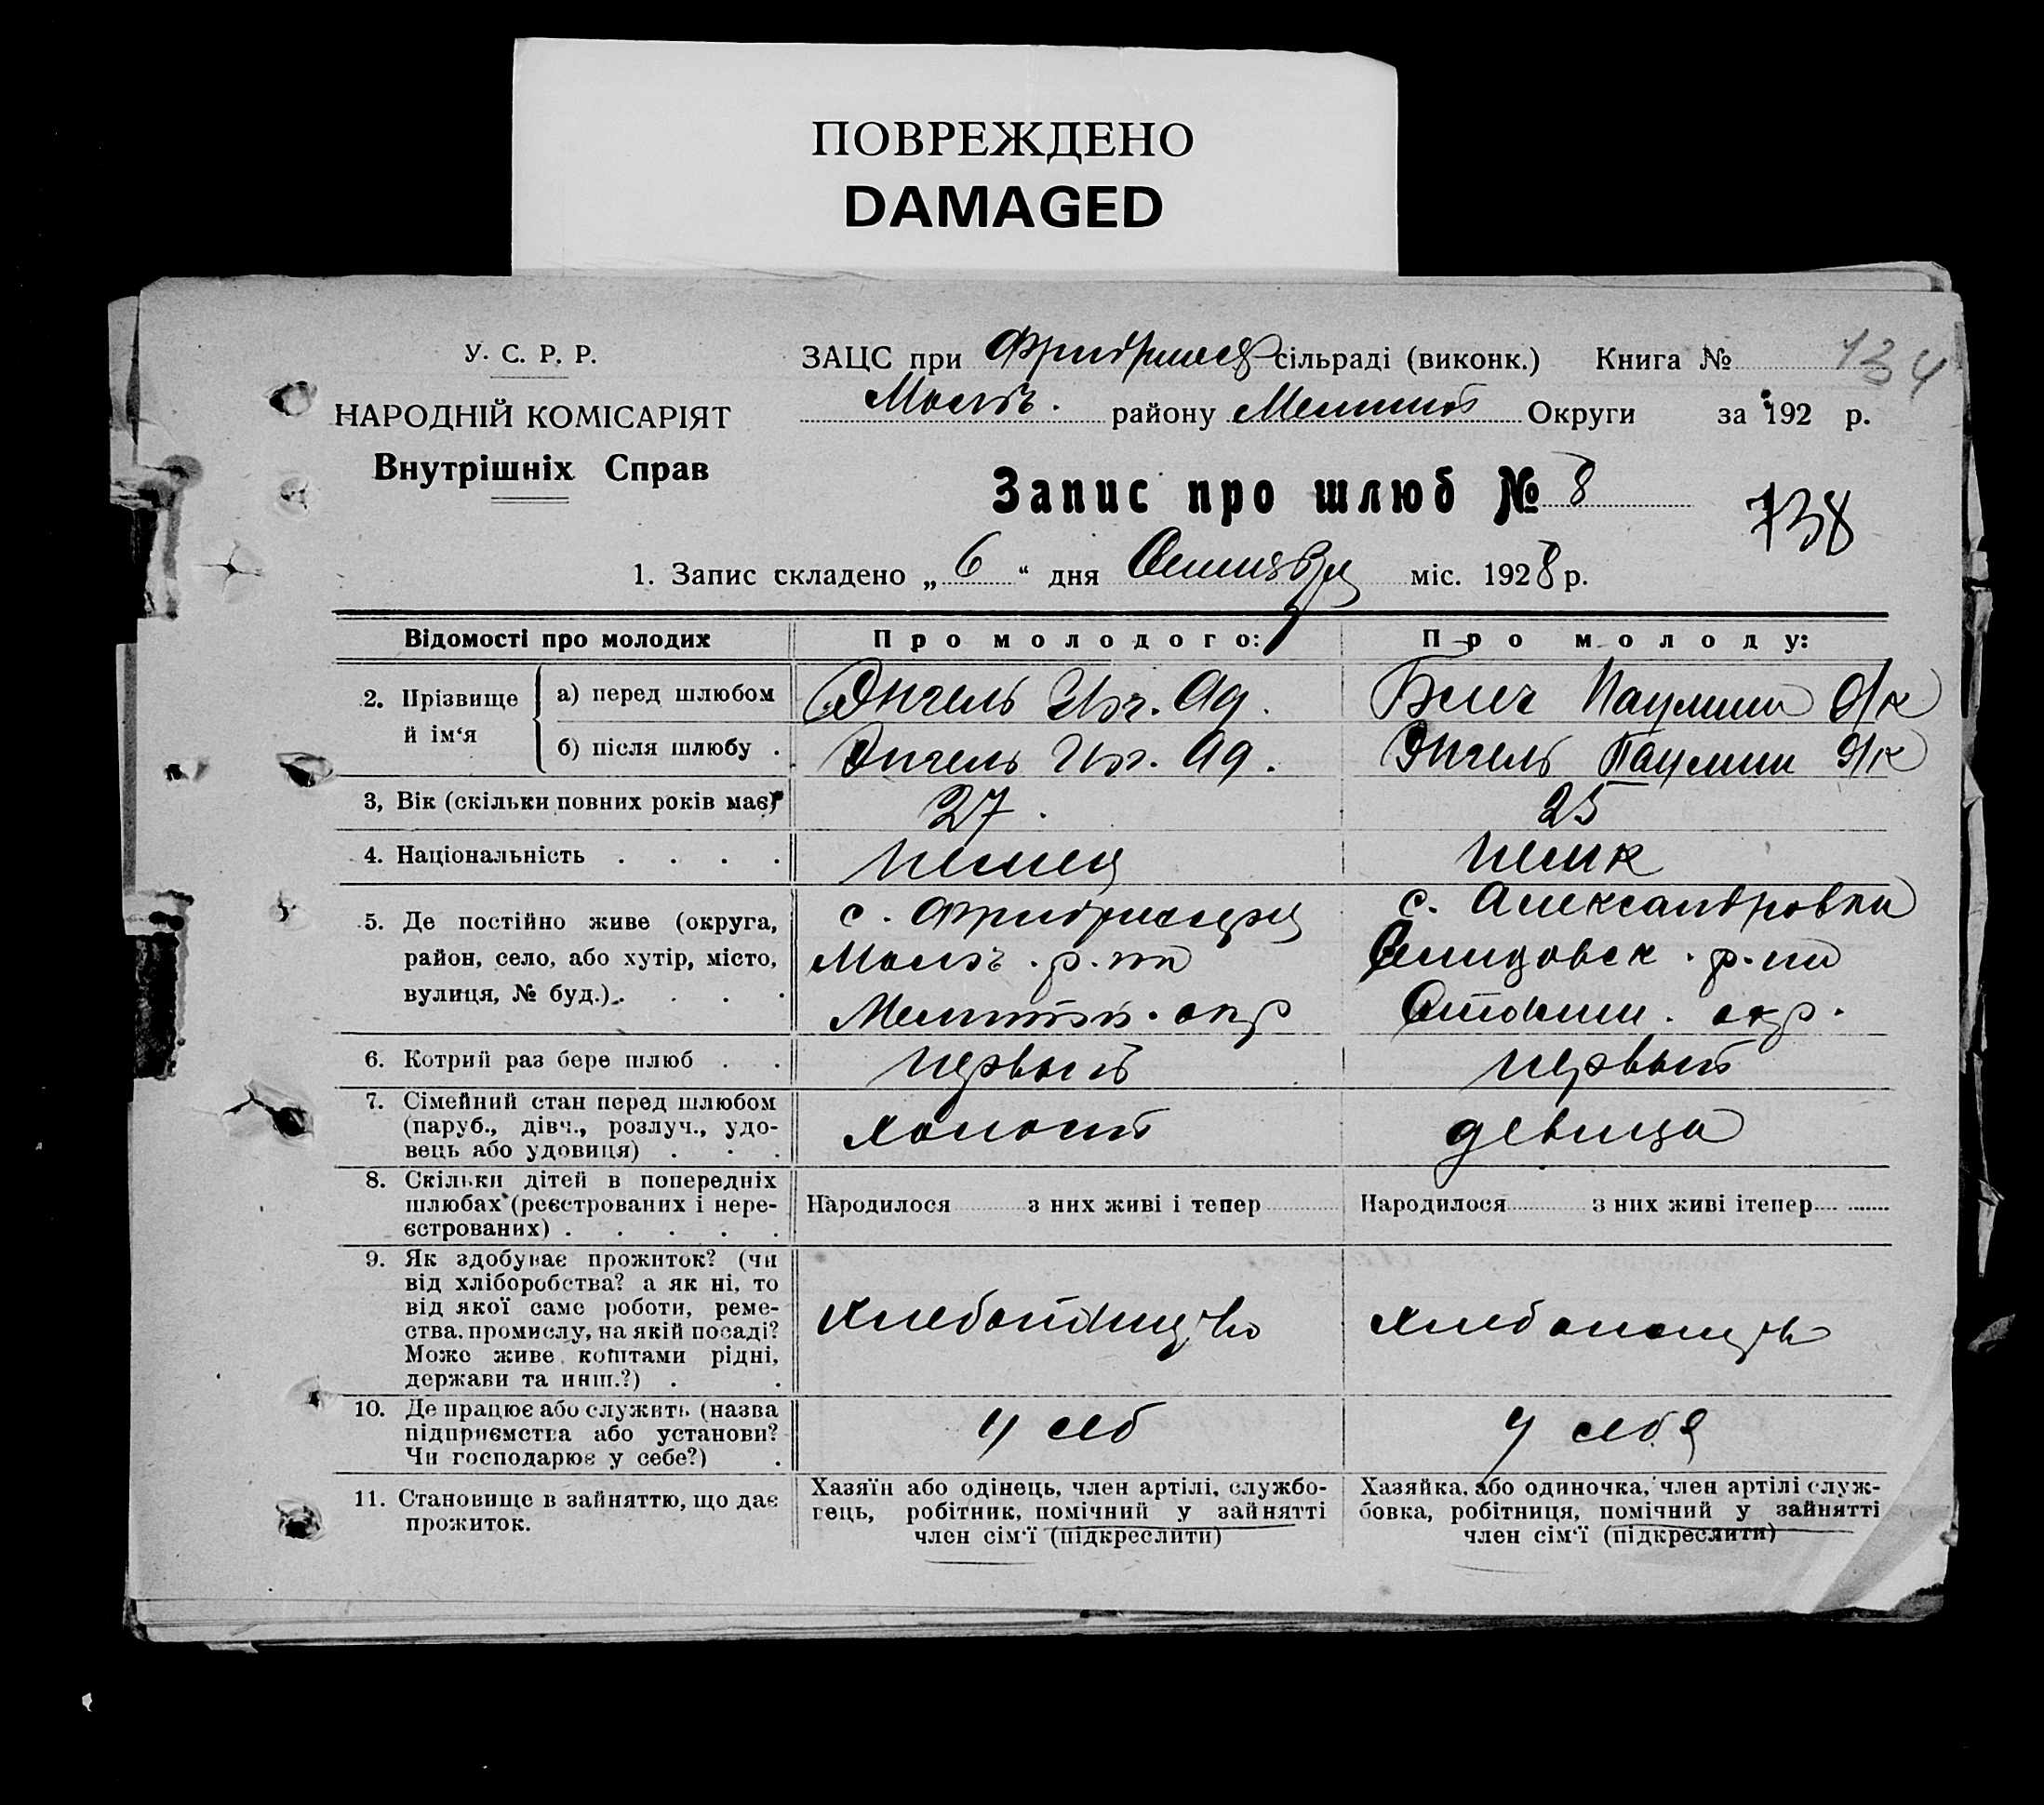 ПОВРЕЖДЕНО
DAMAGED
У. С. Р. Р.
НАРОДНІЙ КОМІСАРІЯТ
Внутрішніх Справ
ЗАЦС при сільраді (виконк.) Книга № 134
району Округи за 192 р.
Запис про шлюб № 8
738
1. Запис складено „ 6 “ дня міс. 1928 р.
Відомості про молодих
Про молодого:
Про молоду:
2. Прізвище й ім‘я
а) перед шлюбом
Энгель Ад.
Паулин
б) після шлюбу .
Энгель Ад.
Энгель Паулин
3, Вік (скільки повних років має)
27.
25
4. Національність . . . .
немец
немк
5. Де постійно живе (округа,
район, село, або хутір, місто,
вулиця, № буд.) . . . .
с.
р.
окр
с. Александровка
р.
окр.
6. Котрий раз бере шлюб . .
первый
первый
7. Сімейний стан перед шлюбом
(паруб., дівч., розлуч., удо-
вець або удовиця) . . .
холост
девица
8. Скільки дітей в попередніх
шлюбах (реєстрованих і нере-
єстрованих) . . . . .
Народилося з них живі і тепер
Народилося з них живі ітепер
9. Як здобуває прожиток? (чи
від хліборобства? а як ні, то
від якої саме роботи, реме-
ства, промислу, на якій посаді?
Може живе коштами рідні,
держави та инш.?) . .
10. Де працює або служить (назва
підприємства або установи?
Чи господарює у себе?) .
у себ
у себя
11. Становище в зайняттю, що дає
прожиток.
Хазяїн або одінець, член артілі, службо-
гець, робітник, помічний у зайнятті
член сім‘ї (підкреслити)
Хазяйка, або одиночка, член артілі служ-
бовка, робітниця, помічний у зайнятті
член сім‘ї (підкреслити)